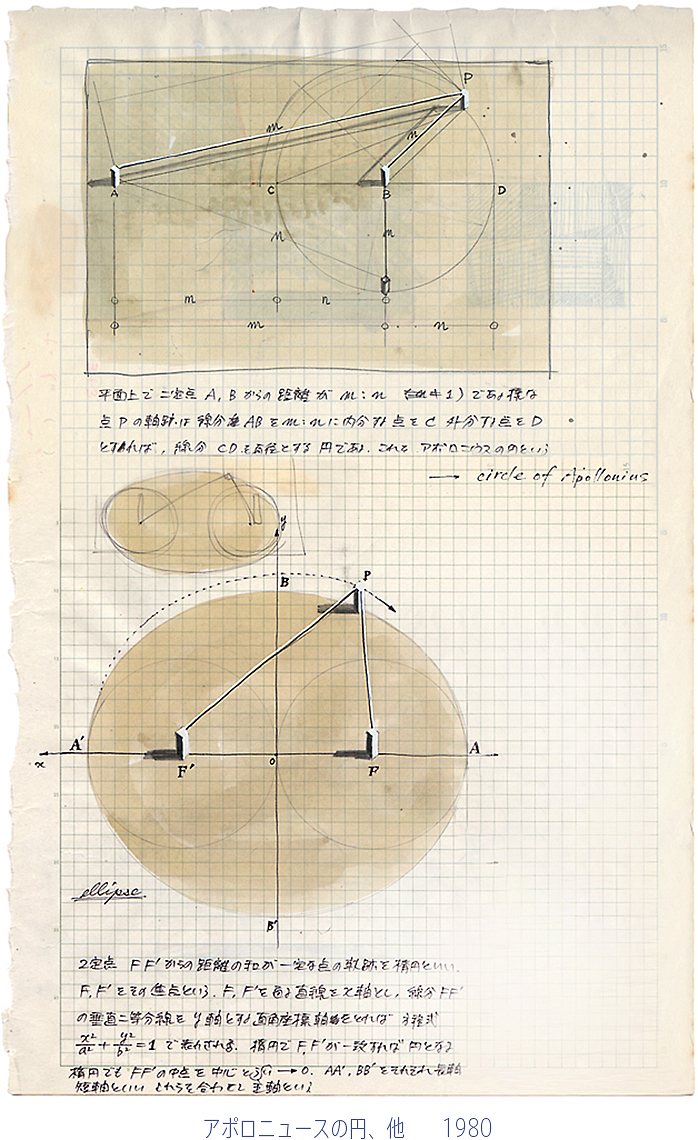 P
m
n
A
C
B
D
n
n
m
n
m
n
平面上で二定点 A, B からの距離が m:n (m≠1) である様な
点 P の軌跡は 線分 AB を m:n に内分する点を C 外分する点を D
とすれば, 線分 CD を直径とする円である. これを アポロニウスの円という
→ circle of Apollonius
y
B
P
A'
A
x
F'
O
F
ellipse
B'
2定点 F F' からの距離の和が一定な点の軌跡を楕円といい.
F, F' をその焦点という. F, F' を通る直線を x 軸とし, 線分 FF'
の垂直二等分線を y 軸とする直角座標軸をとれば 方程式
x²/a² + y²/b² = 1 で表わされる. 楕円で F, F' が一致すれば 円となる
楕円でも FF' の中点を中心と → O. AA', BB' をそれぞれ長軸
短軸といい これらを合わせて 主軸という
アポロニュースの円、他 1980